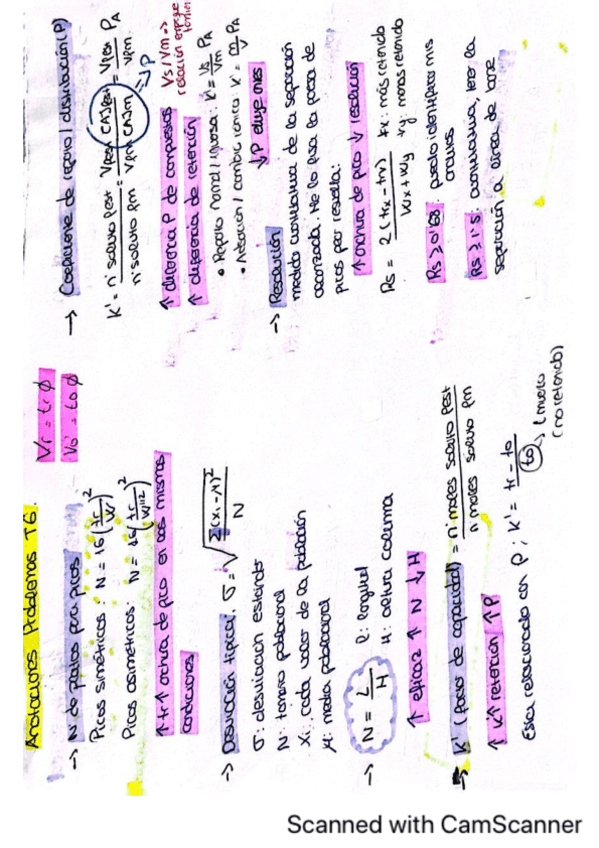 Anotaciones Problemas T6.
→ N de platos por picos
Vr = tr Ø
Vo = to Ø
Picos simétricos: N = 16 (tr/W)²
Picos asimétricos: N = 16 (tr/W1/2)²
↑ tr ↑ anchura de pico en las mismas
condiciones
→ Desviación típica: σ = √Σ(xi - μ)²/N
σ: desviación estándar
N: tamaño poblacional
Xi: cada valor de la población
μ: media poblacional
→ N = L/H l: longitud
H: altura columna
↑ eficaz ↑ N ↓ H
→ K' (factor de capacidad) = nº moles soluto fest / nº moles soluto fm
↑ K' ↑ retención ↑ P
Esta relacionado con P; K' = tr - to / to → t muerto
(no retenido)
→ Coeficiente de reparto / distribución (P)
K' = nº soluto fest / nº soluto fm = Vfest [A]fest / Vfm [A]m = Vfest / Vfm PA
→ P
↑ diferencia P de compuestos
↑ diferencia de retención
Vs/Vm →
relación
• Reparto normal/inversa: K' = Vs/Vm PA
• Adsorción / cambio iónico: K' = m/V PA
↓P eluye antes
→ Resolución
medida cuantitativa de la separación
alcanzada. Me lo fija la pareja de
picos peor resuelta:
↑ anchura de pico ↓ resolución
Rs = 2 (trx - try) / Wx + Wy
trx: más retenido
try: menos retenido
Rs > 0'8: puedo identificar mis
Rs ≥ 1'5: cuantitativa, tener la
separación a línea de base
Scanned with CamScanner